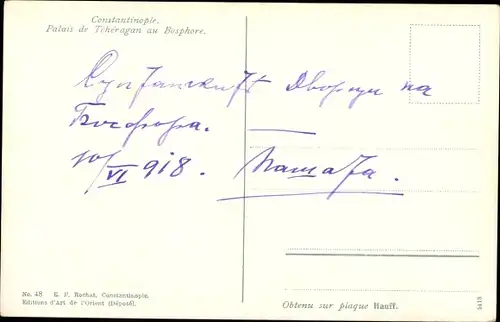 Constantinople.
Palais de Tchéragan au Bosphore.
Султанският Дворец на
Босфора.
10/VI 918.
No. 48 E. F. Rochat, Constantinople.
Editions d'Art de l'Orient (Déposé).
Obtenu sur plaque Hauff.
5418